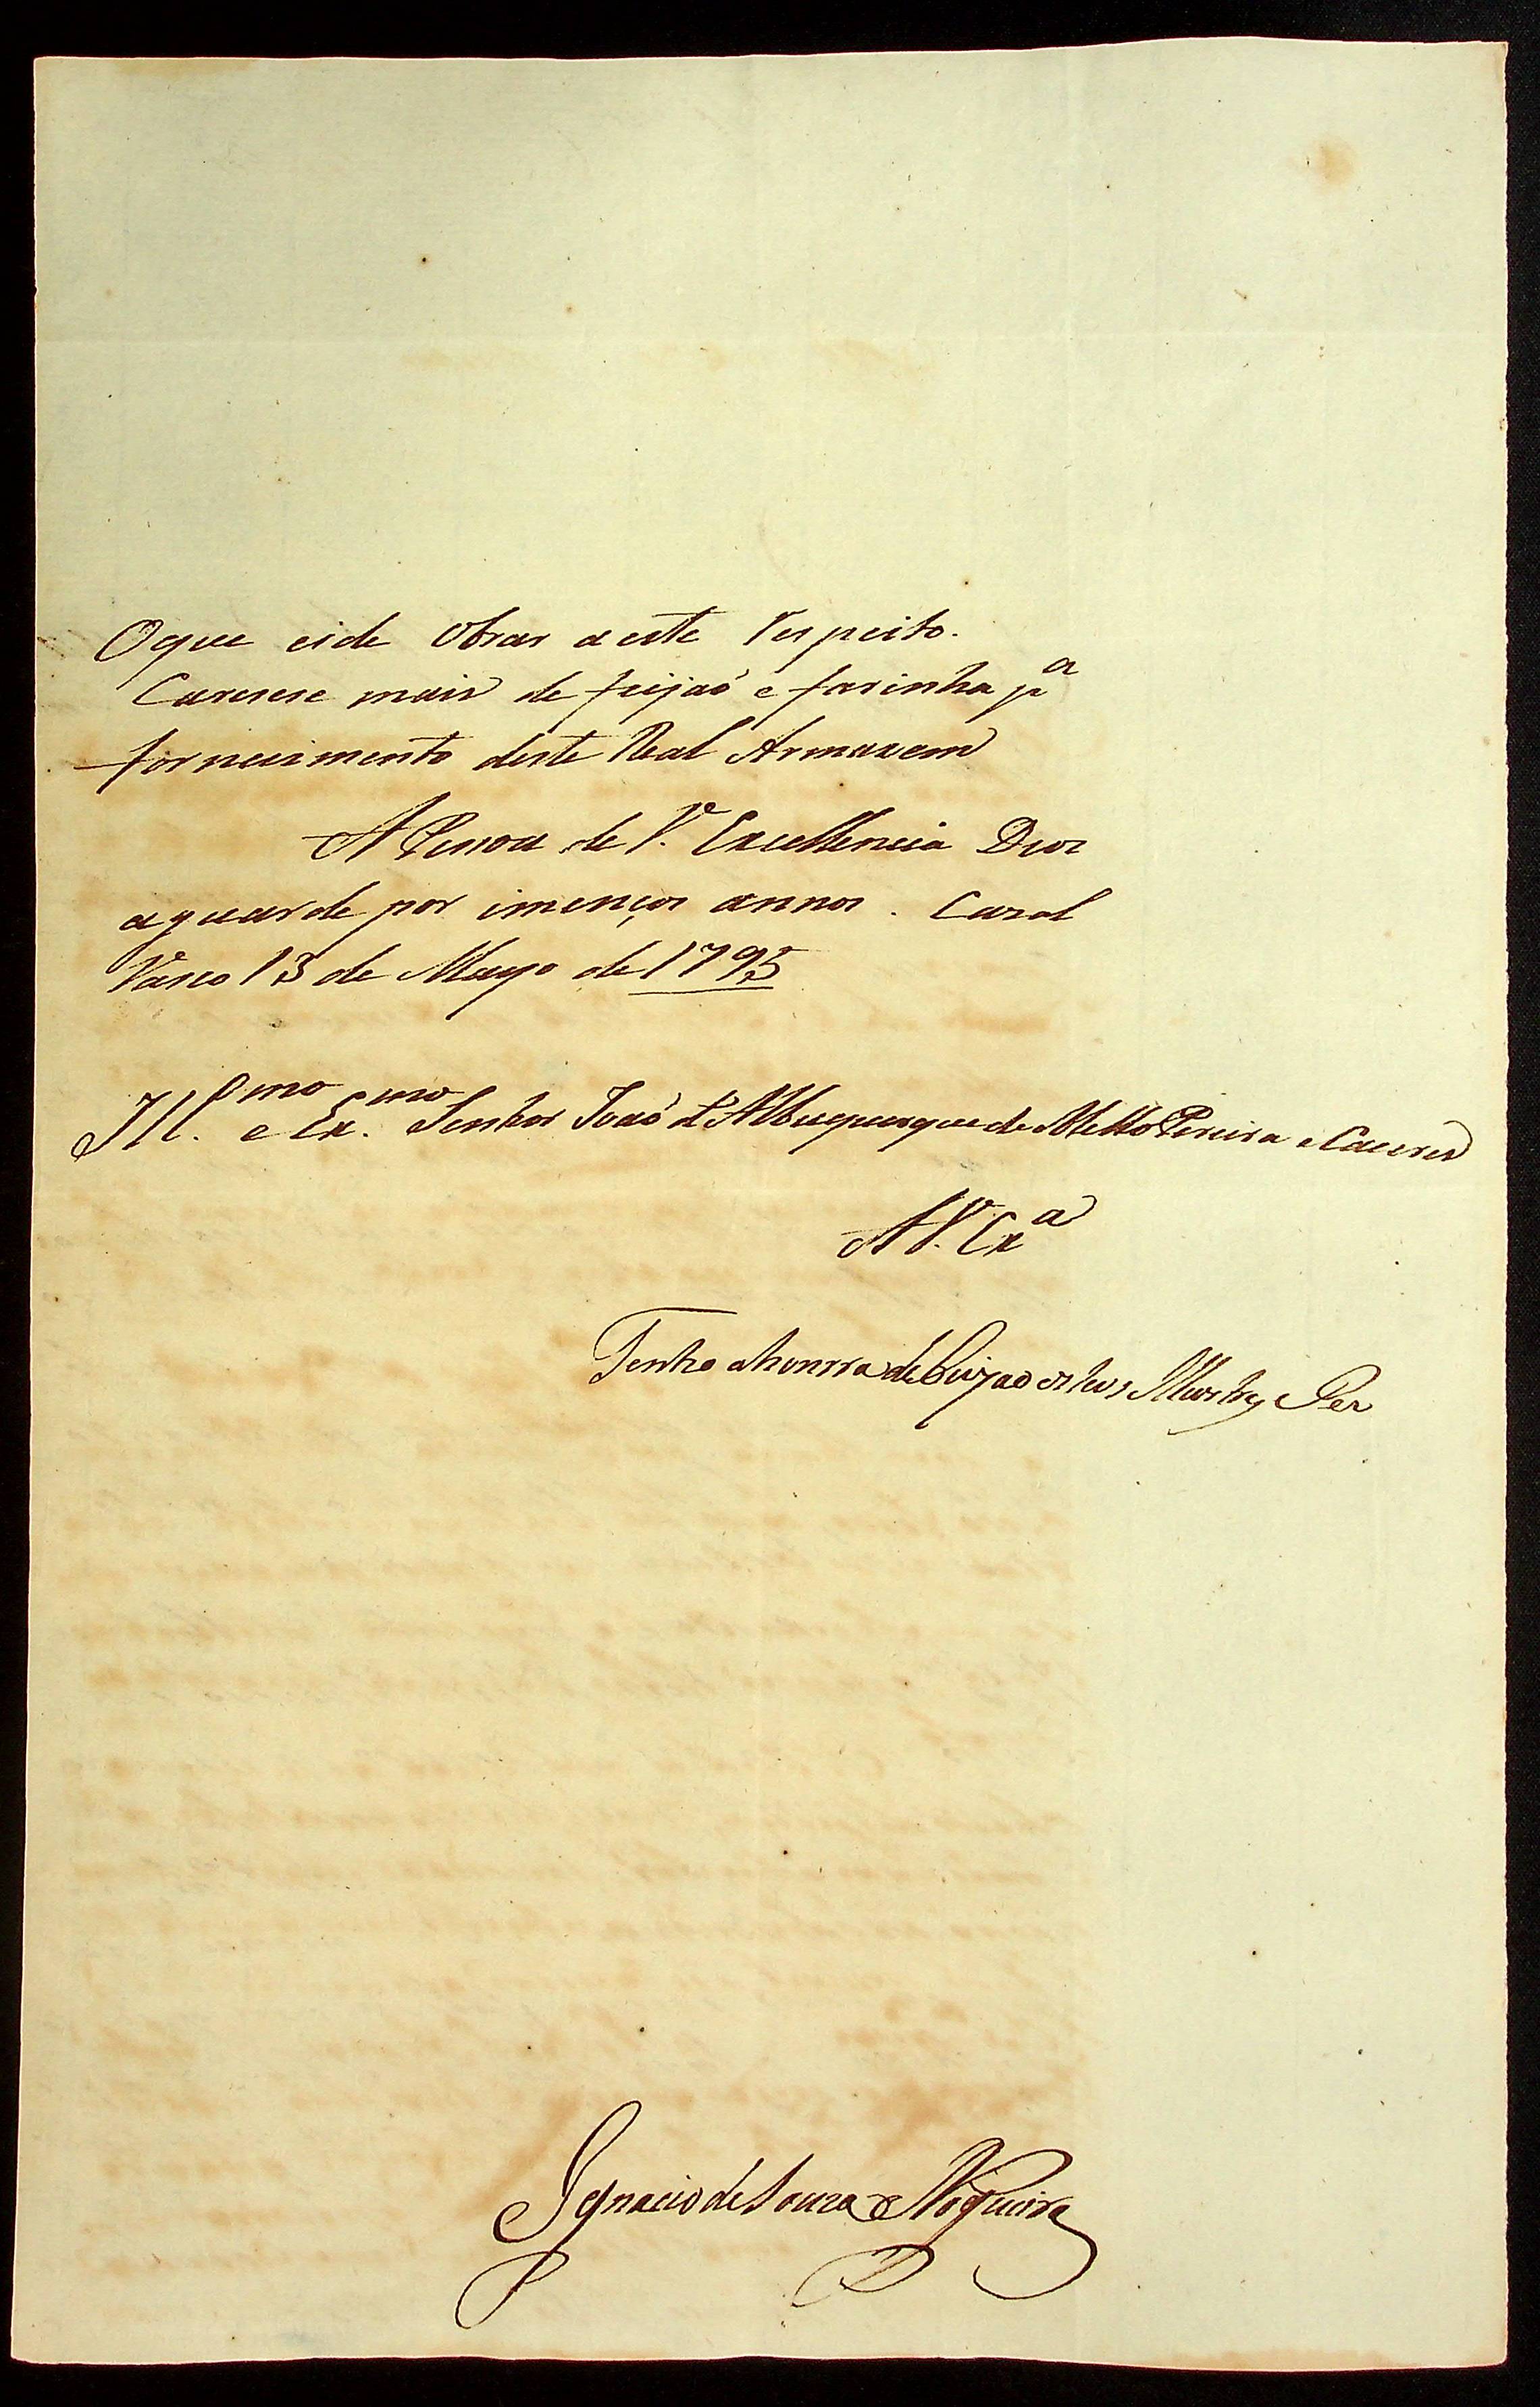 Oque eide Obrar aeste Respeito.
Carecese mais de feijaõ e farinha p.ª
fornecimento deste Real Armazem
A Pessoa de V. Excellencia Deos
aguarde por imenços annos. Cazal
Vasco 13 de Mayo de 1795
Ill.mo e Ex.mo Senhor Joaõ d'Albuquerque de Mello Pereira e Caceres
A V. Exª
Tenho ahonrra de Beijar os seus Illustres Pez
Ignacio de Souza Nogueira